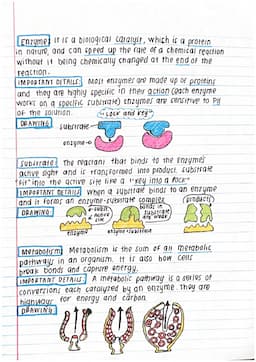 Enzyme: It is a biological catalyst, which is a protein
in nature, and can speed up the rate of a chemical reaction
without it being chemically changed at the end of the
reaction.
IMPORTANT DETAILS: Most enzymes are made up of proteins
and they are highly specific in their action (each enzyme
works on a specific substrate) enzymes are sensitive to pH
of the solution.
"Lock and key"
DRAWING
substrate
enzyme
Substrate: The reactant that binds to the enzymes
active sight and is transformed into product. substrate
"fit" into the active site like a "key into a lock"
IMPORTANT DETAILS: When a substrate binds to an enzyme
and it forms an enzyme-substrate complex
DRAWING
active
site
bonds in
substrate
are weak
products
enzyme
enzyme-substrate
Metabolism: Metabolism is the sum of all metabolic
pathways in an organism. It is also how cells
break bonds and capture energy.
IMPORTANT DETAILS: A metabolic pathway is a series of
conversions each catalyzed by an enzyme. they are
highways for energy and carbon
DRAWING